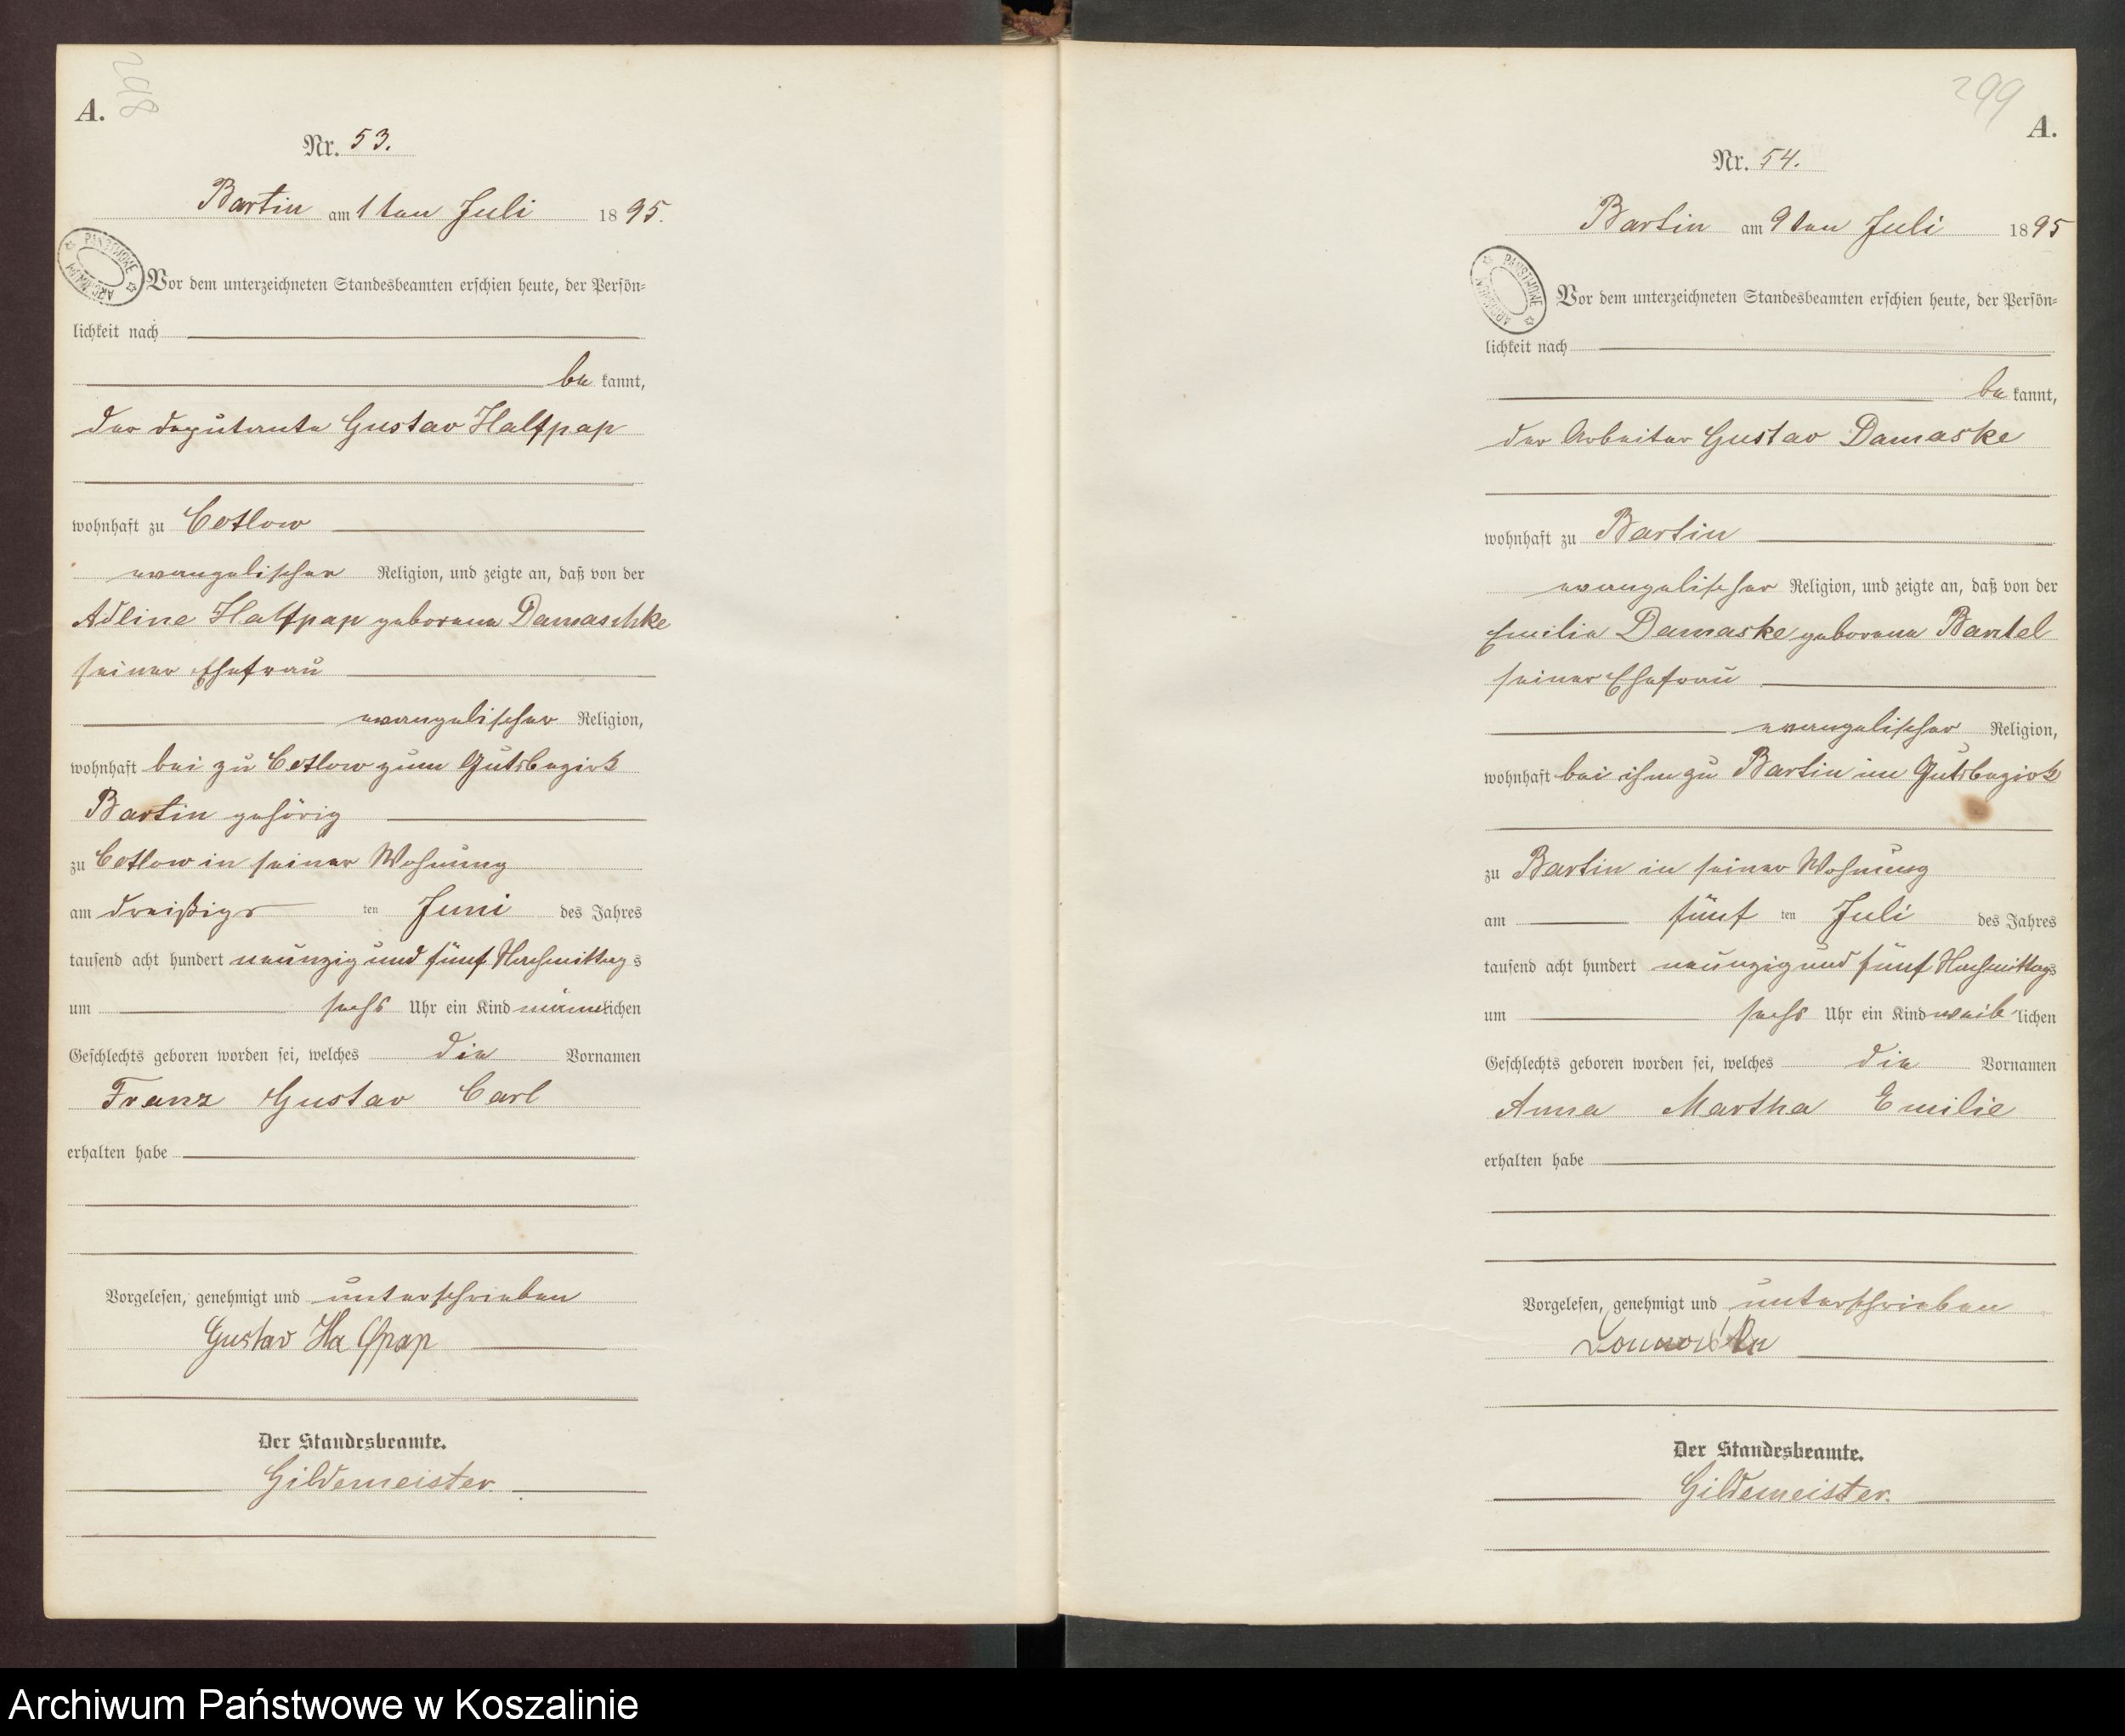 298
A.
Nr. 53.
Bartin am 1ten Juli 1895.
Vor dem unterzeichneten Standesbeamten erschien heute, der Persön-
lichkeit nach
be kannt,
der Deputante Gustav Halfpap
wohnhaft zu Cotlow
evangelischer Religion, und zeigte an, daß von der
Adline Halfpap geborene Damaschke
seiner Ehefrau
evangelischer Religion,
wohnhaft bei zu Cotlow zum Gutsbezirk
Bartin gehörig
zu Cotlow in seiner Wohnung
am dreißigs ten Juni des Jahres
tausend acht hundert neunzig und fünf Nachmittag s
um sechs Uhr ein Kind männlichen
Geschlechts geboren worden sei, welches die Vornamen
Franz Gustav Carl
erhalten habe
Vorgelesen, genehmigt und unterschrieben
Gustav Halfpap
Der Standesbeamte.
Gildemeister.
299
A.
Nr. 54.
Bartin am 9ten Juli 1895
Vor dem unterzeichneten Standesbeamten erschien heute, der Persön-
lichkeit nach
be kannt,
der Arbeiter Gustav Damaske
wohnhaft zu Bartin
evangelischer Religion, und zeigte an, daß von der
Emilie Damaske geborene Bantel
seiner Ehefrau
evangelischer Religion,
wohnhaft bei ihm zu Bartin im Gutsbezirk
zu Bartin in seiner Wohnung
am fünf ten Juli des Jahres
tausend acht hundert neunzig und fünf Nachmittags
um sechs Uhr ein Kind weib lichen
Geschlechts geboren worden sei, welches die Vornamen
Anna Martha Emilie
erhalten habe
Vorgelesen, genehmigt und unterschrieben
Der Standesbeamte.
Gildemeister.
Archiwum Państwowe w Koszalinie